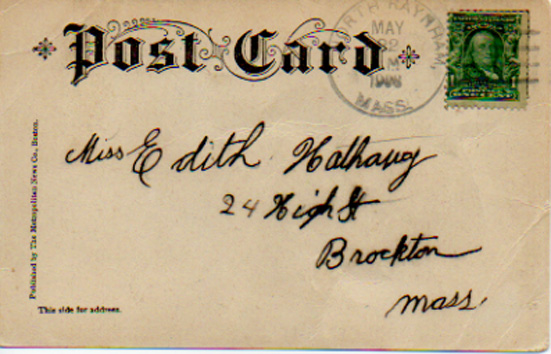 Post Card
NORTH RAYNHAM
MAY
MASS.
Miss Edith Hathaway
24 High St
Brockton
Mass.
Published by The Metropolitan News Co., Boston.
This side for address.